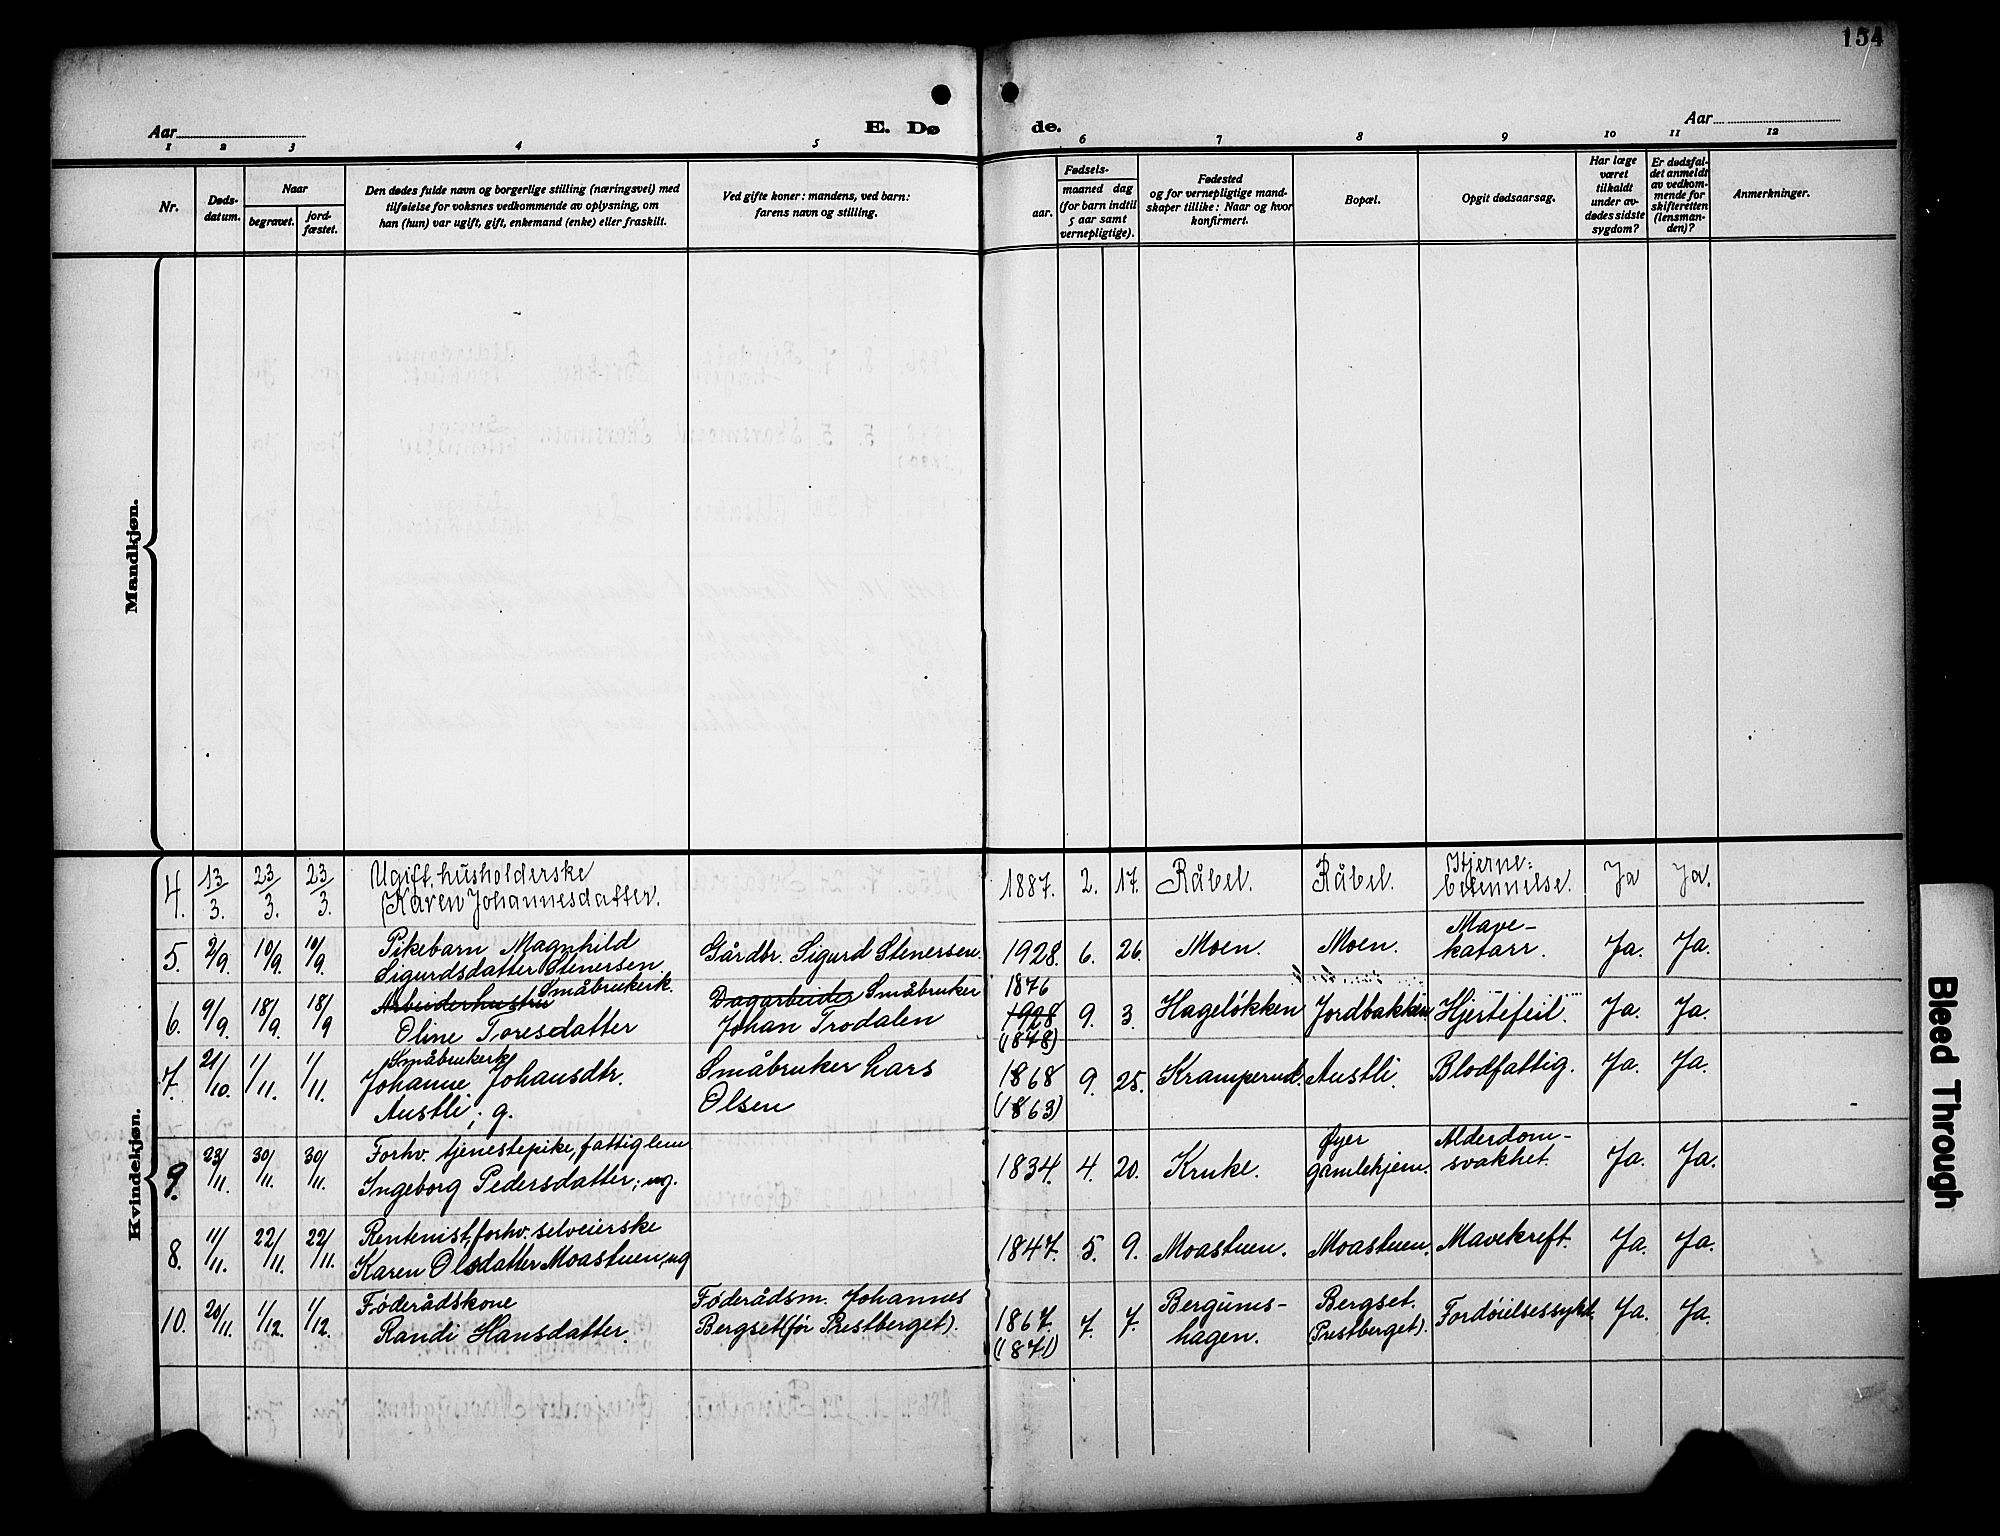 154
Aar
E. Dø
de.
Aar
1 2 3 4 5 6 7 8 9 10 11 12
Nr.
Døds-
datum.
Naar
begravet.
jord-
fæstet.
Den dødes fulde navn og borgerlige stilling (næringsvei) med
tilføielse for voksnes vedkommende av oplysning, om
han (hun) var ugift, gift, enkemand (enke) eller fraskilt.
Ved gifte koner: mandens, ved barn:
farens navn og stilling.
Fødsels-
aar.
maaned dag
(for barn indtil
5 aar samt
vernepligtige).
Fødested
og for vernepligtige mand-
skaper tillike: Naar og hvor
konfirmert.
Bopæl.
Opgit dødsaarsag.
Har læge
været
tilkaldt
under av-
dødes sidste
sygdom?
Er dødsfal-
det anmeldt
av vedkom-
mende for
skifteretten
(lensman-
den)?
Anmerkninger.
Mandkjøn.
Kvindekjøn.
4. 13/3. 23/3. 23/3. Ugift, husholderske
Karen Johannesdatter.
1887. 2. 17. Råbel. Råbel. Hjerne-
betennelse. Ja Ja.
5. 2/9. 10/9. 10/9. Pikebarn Magnhild
Sigurdsdatter Stenersen
Gårdbr. Sigurd Stenersen.
1928. 6. 26. Moen. Moen. Mave-
katarr. Ja. Ja.
6. 9/9. 18/9. 18/9 Arbeiderhustru Småbrukerk.
Oline Toresdatter
Dagarbeider Småbruker
Johan Trodalen
1876
1928
(1878) 9. 3. Hageløkken Jordbakken Hjertefeil. Ja. Ja.
7. 21/10. 1/11. 1/11. Småbrukerk.
Johanne Johansdtr.
Austli; g.
Småbruker Lars
Olsen
1868
(1863) 9. 25. Kramperud. Austli. Blodfattig. Ja. Ja.
9. 23/11. 30/11. 30/11. Forhv. tjenestepike, fattiglem
Ingeborg Pedersdatter; ug.
1834. 4. 20. Kruke. Øyer
gamlehjem. Alderdom-
svakhet. Ja. Ja.
8. 11/11. 22/11. 22/11. Rentenist, forhv. selveierske
Karen Olsdatter Moastuen, ug
1847. 5. 9. Moastuen. Moastuen. Mavekreft. Ja. Ja.
10. 20/11. 1/12. 1/12. Føderådskone
Randi Hansdatter.
Føderådsm. Johannes
Bergset (før Prestberget).
1867.
(1871) 7. 7. Bergums-
hagen. Bergset.
(Prestberget). Fordøielsessykd. Ja. Ja.
Bleed Through